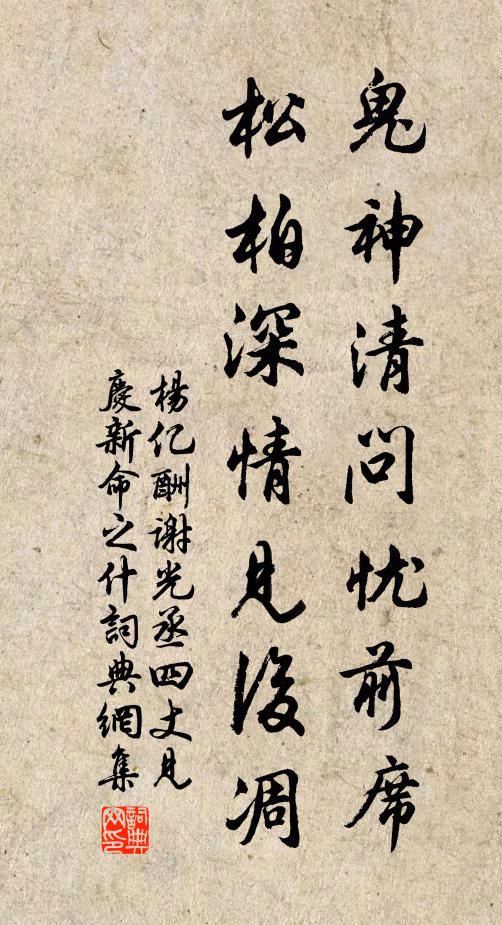 鬼神清问忧前席
松柏深情見後凋
楊亿酬谢光丞四丈見
慶新命之什詞典網集
詞典网印